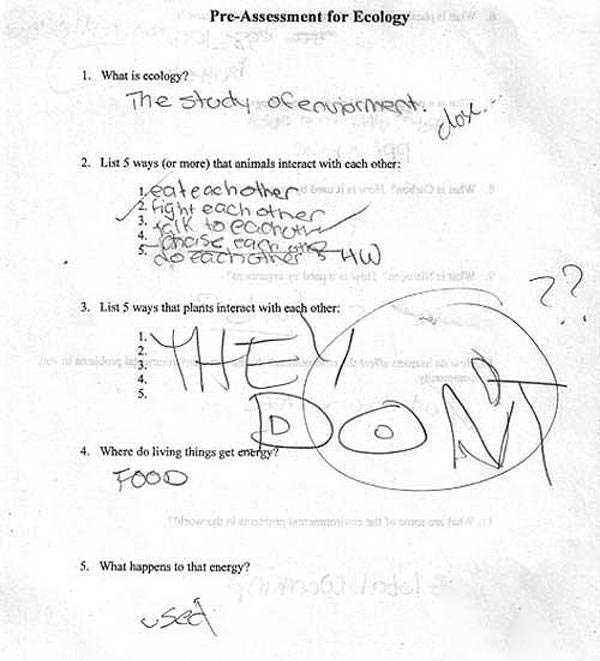 Pre-Assessment for Ecology
1. What is ecology?
The study of enviorment.
close...
2. List 5 ways (or more) that animals interact with each other:
1. eat each other
2. fight each other
3. talk to eachother
4. chaise each other
5. do eachother HW
3. List 5 ways that plants interact with each other:
??
1.
2.
3.
4.
5.
THEY
DON'T
4. Where do living things get energy?
FOOD
5. What happens to that energy?
used